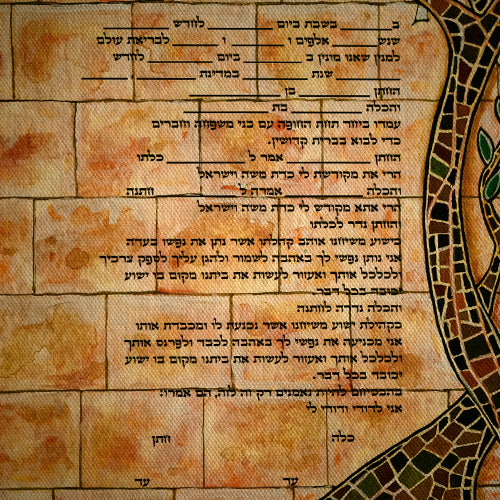 ב______ בשבת ביום _________ לחדש
שנש______ אלפים ו ______ ו ______ לבריאת עולם
למנין שאנו מונין ב ________ ביום ________ לחדש
________ שנת ________ במדינת ________ , ________
החתן __________ בן ____________
והכלה __________ בת ____________
עמדו ביחד תחת החופה עם בני משפחה וחברים
כדי לבוא בברית קדושין.
החתן __________ אמר ל __________ כלתו
הרי את מקודשת לי כדת משה וישראל
והכלה __________ אמרת ל __________ חתנה
הרי אתא מקודש לי כדת משה וישראל
החתן נדר לכלתו
כישוע משיחנו אוהב קהלתו אשר נתן את נפשו בעדה
אני נותן נפשי לך באהבה לשמור ולהגן עליך לספק צרכיך
ולכלכל אותך ואעזור לעשות את ביתנו מקום בו ישוע
יכובד בכל דבר.
והכלה נדרה לחתנה
כקהילת ישוע משיחנו אשר נכנעת לו ומכבדת אותו
אני מכניעה את נפשי לך באהבה לכבד ולפרנס אותך
ולכלכל אותך ואעזור לעשות את ביתנו מקום בו ישוע
יכובד בכל דבר.
בהבטיחם להיות נאמנים רק זה לזה, הם אמרו:
אני לדודי ודודי לי
כלה חתן
עד עד